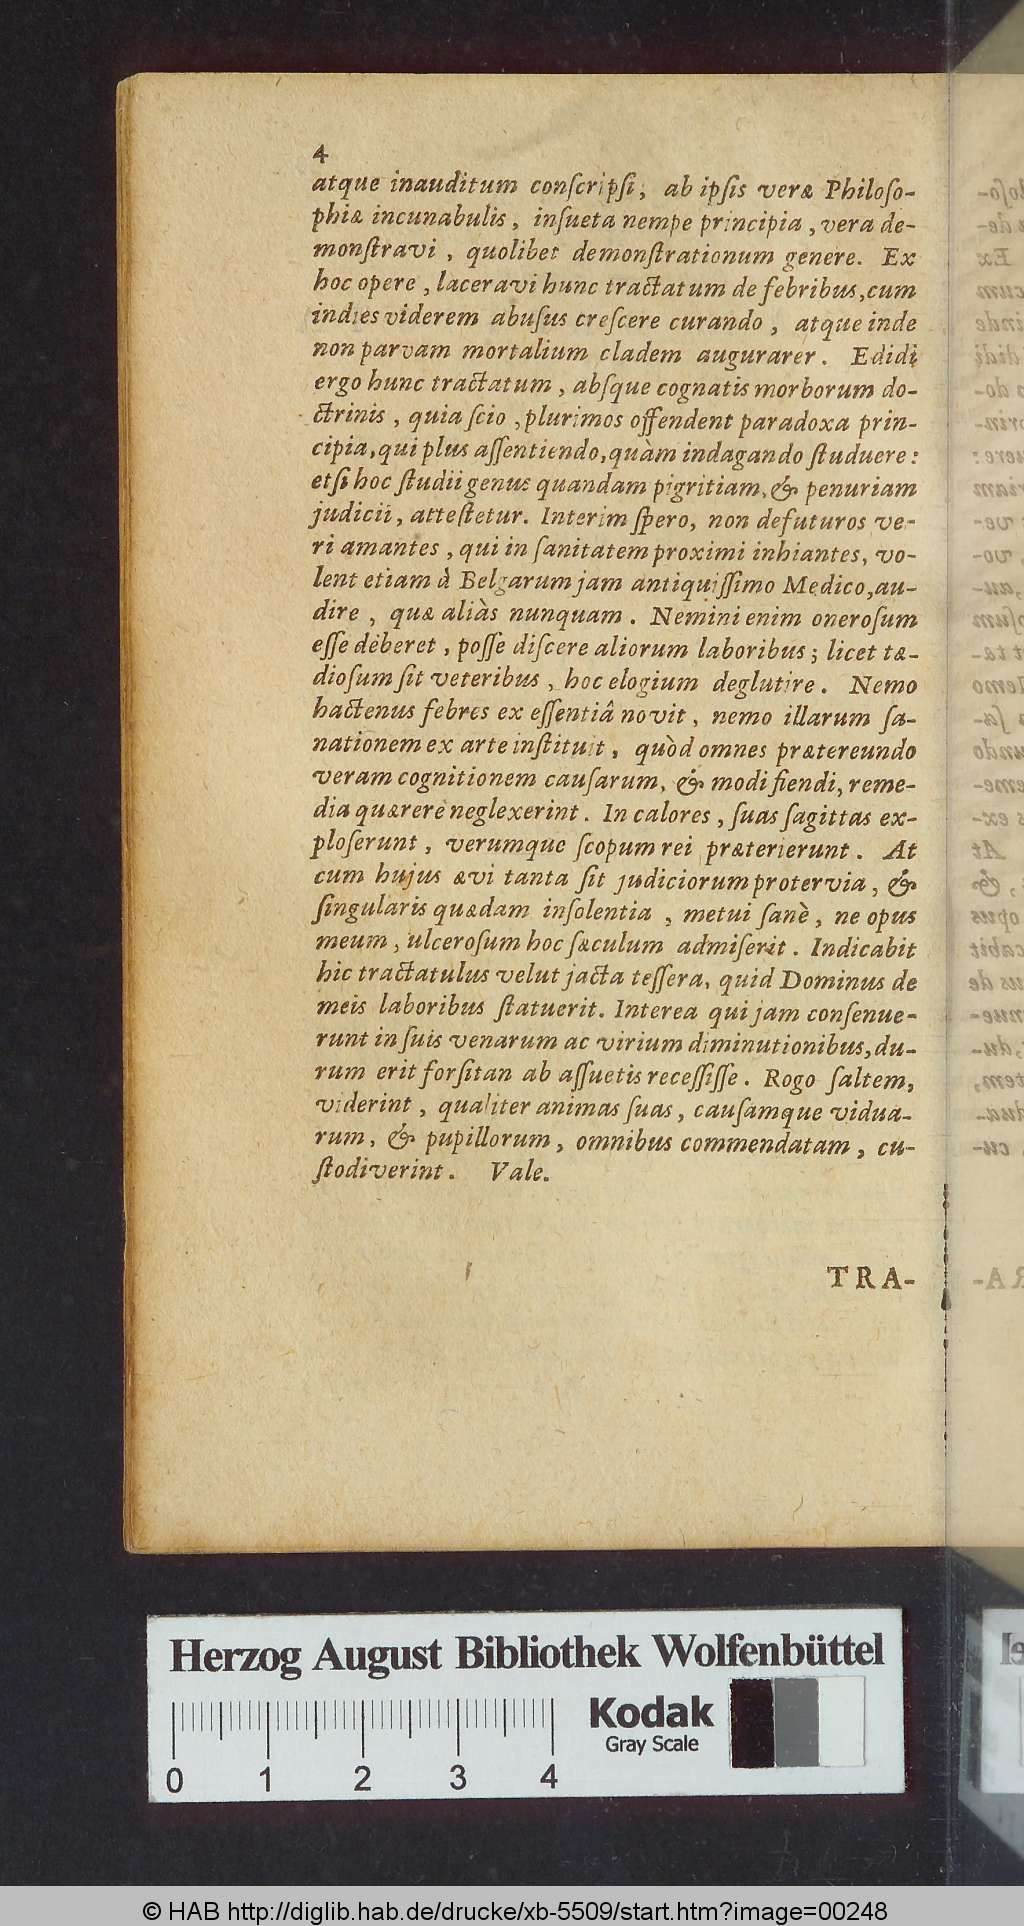 4
atque inauditum conſcripſi, ab ipſis veræ Philoſo-
phiæ incunabulis, inſueta nempe principia, vera de-
monſtravi, quolibet demonſtrationum genere. Ex
hoc opere, laceravi hunc tractatum de febribus, cum
indies viderem abuſus creſcere curando, atque inde
non parvam mortalium cladem augurarer. Edidi
ergo hunc tractatum, abſque cognatis morborum do-
ctrinis, quia ſcio, plurimos offendent paradoxa prin-
cipia, qui plus aſſentiendo, quàm indagando ſtuduere:
etſi hoc ſtudii genus quandam pigritiam, & penuriam
judicii, atteſtetur. Interim ſpero, non defuturos ve-
ri amantes, qui in ſanitatem proximi inhiantes, vo-
lent etiam à Belgarum jam antiquiſſimo Medico, au-
dire, quæ aliàs nunquam. Nemini enim oneroſum
eſſe deberet, poſſe diſcere aliorum laboribus; licet tæ-
dioſum ſit veteribus, hoc elogium deglutire. Nemo
hactenus febres ex eſſentiâ novit, nemo illarum ſa-
nationem ex arte inſtituit, quòd omnes prætereundo
veram cognitionem cauſarum, & modi fiendi, reme-
dia quærere neglexerint. In calores, ſuas ſagittas ex-
ploſerunt, verumque ſcopum rei præterierunt. At
cum hujus ævi tanta ſit judiciorum protervia, &
ſingularis quædam inſolentia, metui ſanè, ne opus
meum, ulceroſum hoc ſæculum admiſerit. Indicabit
hic tractatulus velut jacta teſſera, quid Dominus de
meis laboribus ſtatuerit. Interea qui jam conſenue-
runt in ſuis venarum ac virium diminutionibus, du-
rum erit forſitan ab aſſuetis receſſiſſe. Rogo ſaltem,
viderint, qualiter animas ſuas, cauſamque vidua-
rum, & pupillorum, omnibus commendatam, cu-
ſtodiverint. Vale.
TRA-
Herzog August Bibliothek Wolfenbüttel
Kodak
Gray Scale
0 1 2 3 4
© HAB http://diglib.hab.de/drucke/xb-5509/start.htm?image=00248